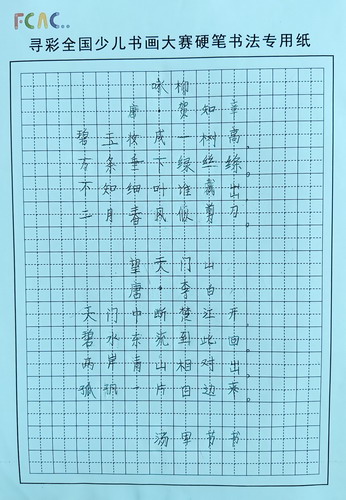 FCAC..
寻彩全国少儿书画大赛硬笔书法专用纸
咏柳
唐·贺知章
碧玉妆成一树高。
万条垂下绿丝绦。
不知细叶谁裁出。
二月春风似剪刀。
望天门山
唐·李白
天门中断楚江开
碧水东流到此回。
两岸青山相对出。
孤帆一片日边来。
汤甲节书